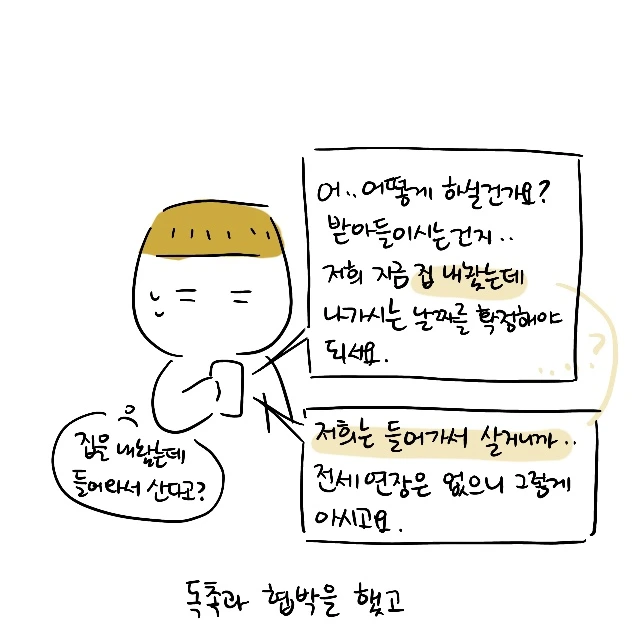 어.. 어떻게 하실건가요?
받아들이시는건지..
저희 지금 집 내놨는데
나가시는 날짜를 확정해야
되세요.
.....?
저희는 들어가서 살거니까..
전세 연장은 없으니 그렇게
아시고요.
집을 내놨는데
들어와서 산다고?
독촉과 협박을 했고